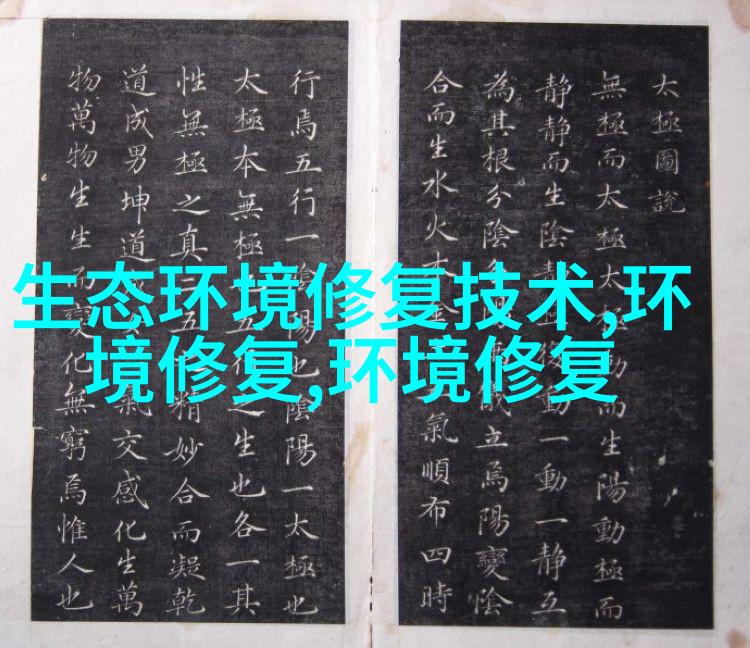 生态环境修复技术,环
境修复,环境修复
太極圖說
無極而太極太極動而生陽動極而
靜靜而生陰靜極復動一動一靜互
為其根分陰分陽儀立焉陽變陰
合而生水火木金氣順布四時
行焉五行一陰陽也陰陽一太極也
太極本無極五行之生也各一其
性無極之真二五精妙合而凝乾
道成男坤道氣交感化生萬
物萬物生生而變化無窮焉惟人也